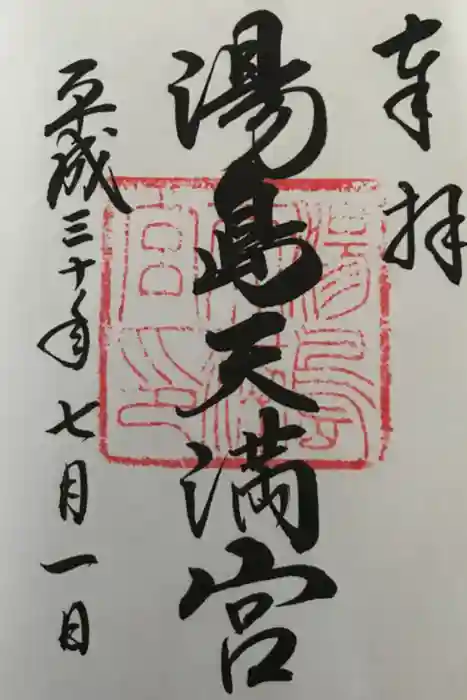 奉拝
湯島天満宮
平成三十年七月一日